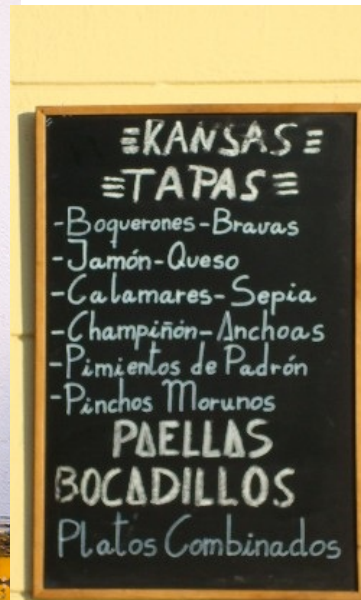 KANSAS
TAPAS
-Boquerones-Bravas
-Jamón-Queso
-Calamares-Sepia
-Champiñón-Anchoas
-Pimientos de Padrón
-Pinchos Morunos
PAELLAS
BOCADILLOS
Platos Combinados